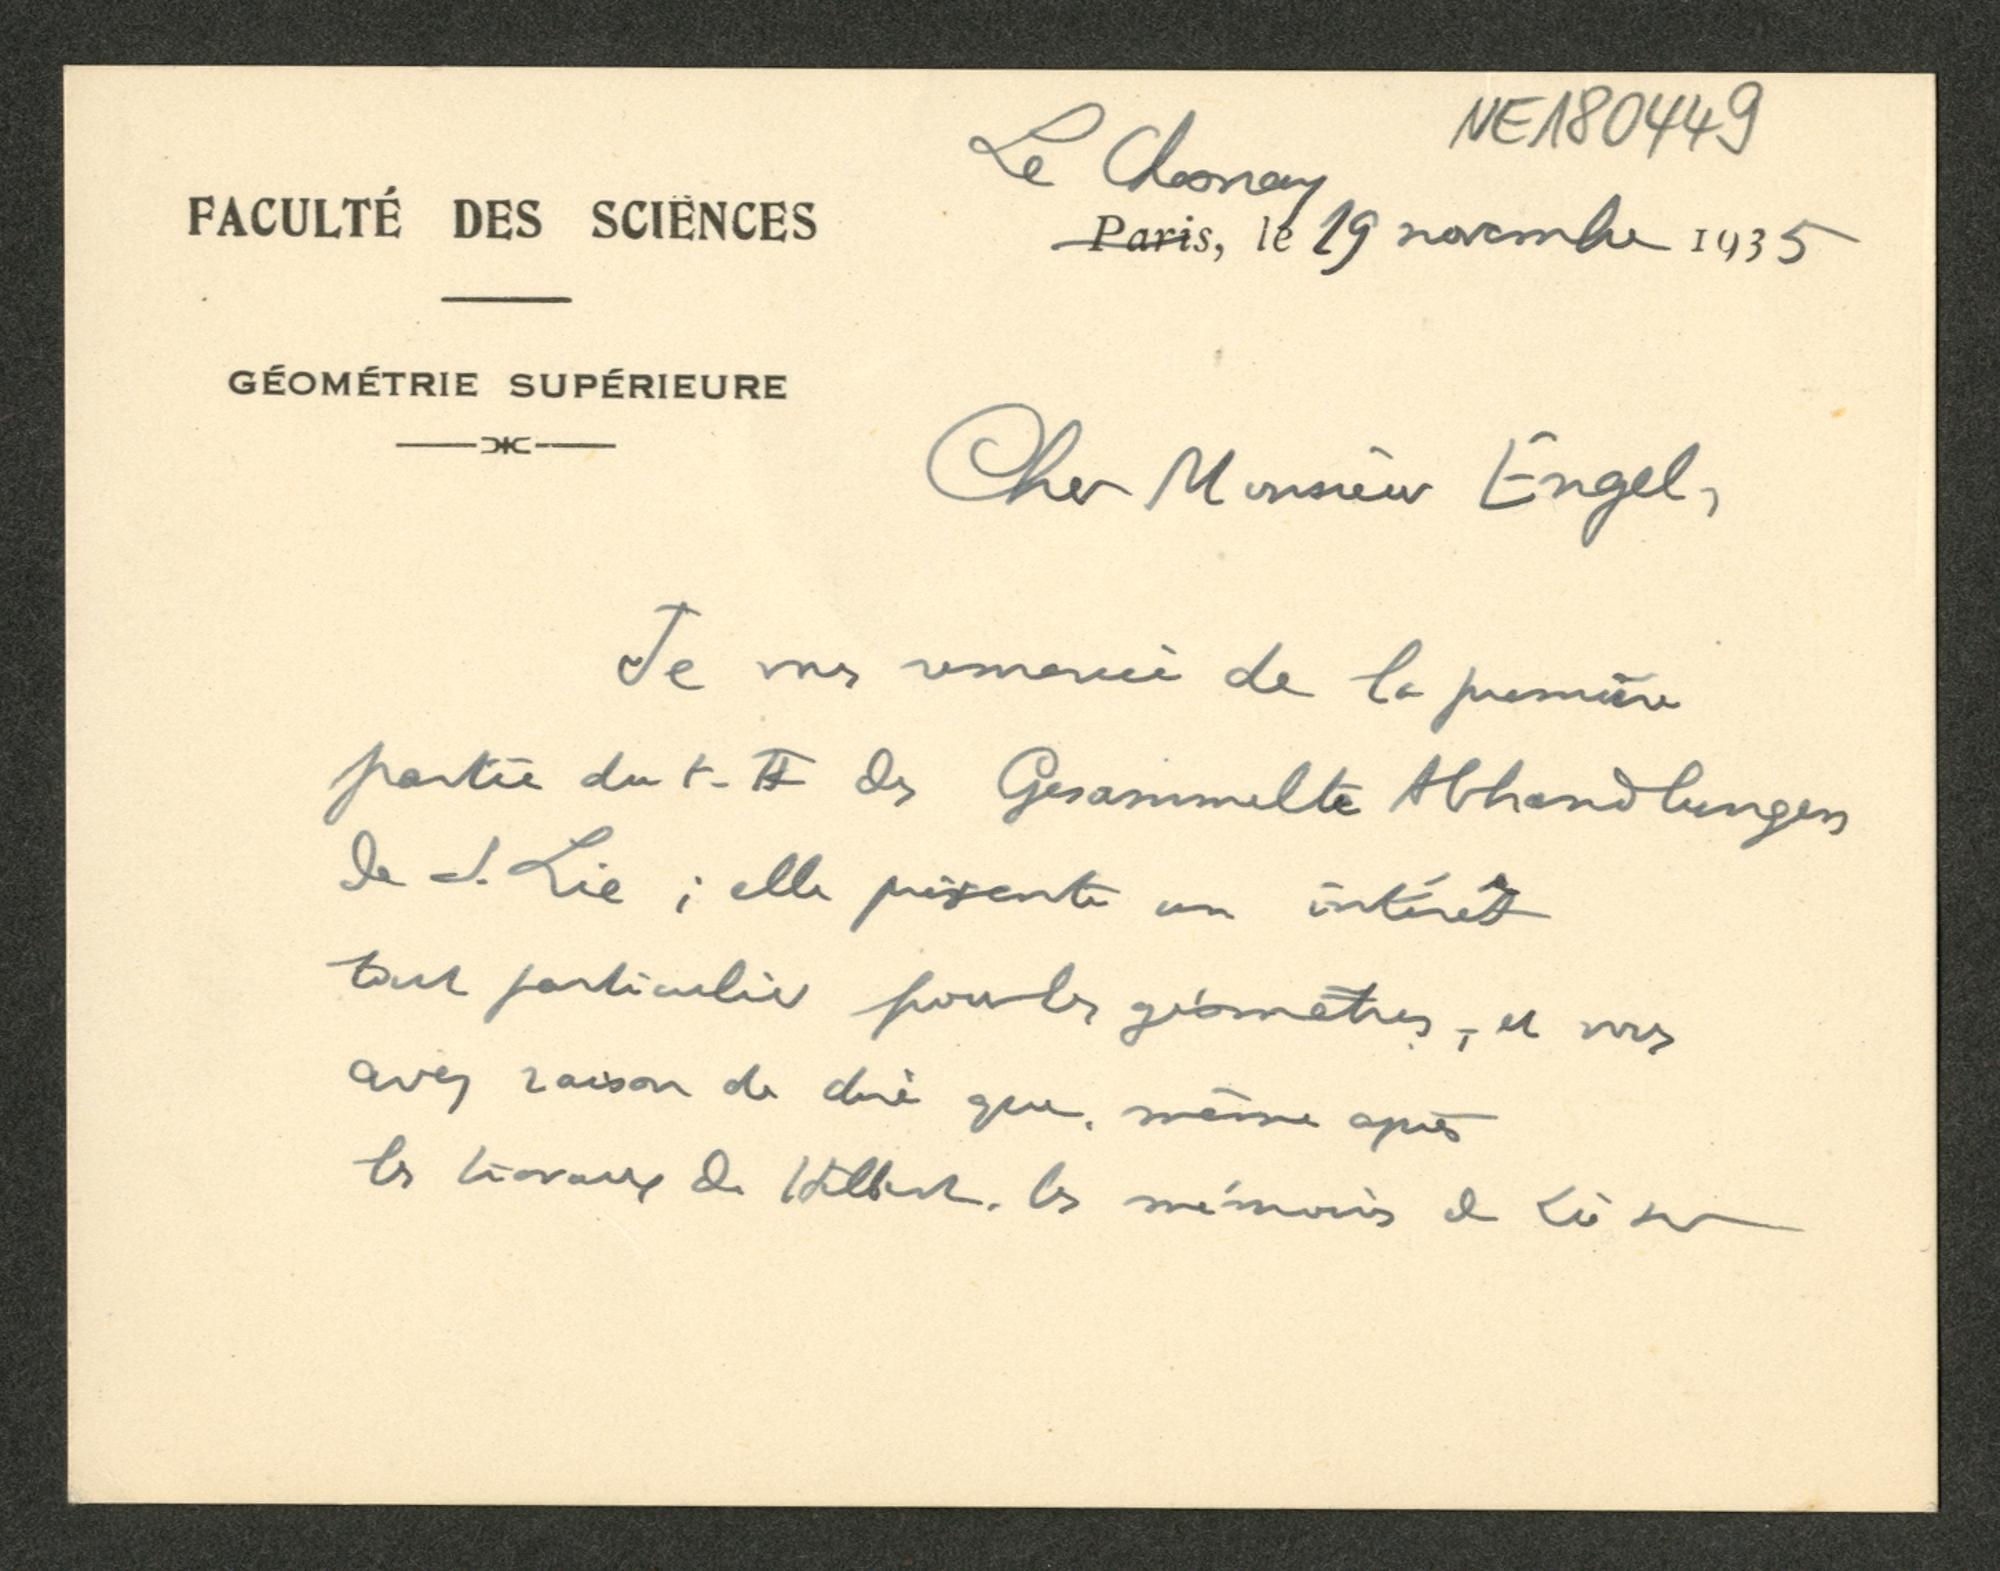 NE180449
Le Chesnay
FACULTÉ DES SCIENCES
Paris, le 19 novembre 1935
GÉOMÉTRIE SUPÉRIEURE
Cher Monsieur Engel,
Je vous remercie de la première
partie du t. II des Gesammelte Abhandlungen
de S. Lie ; elle présente un intérêt
tout particulier pour les géomètres, et vous
avez raison de dire que, même après
les travaux de Hilbert, les mémoires de Lie sur